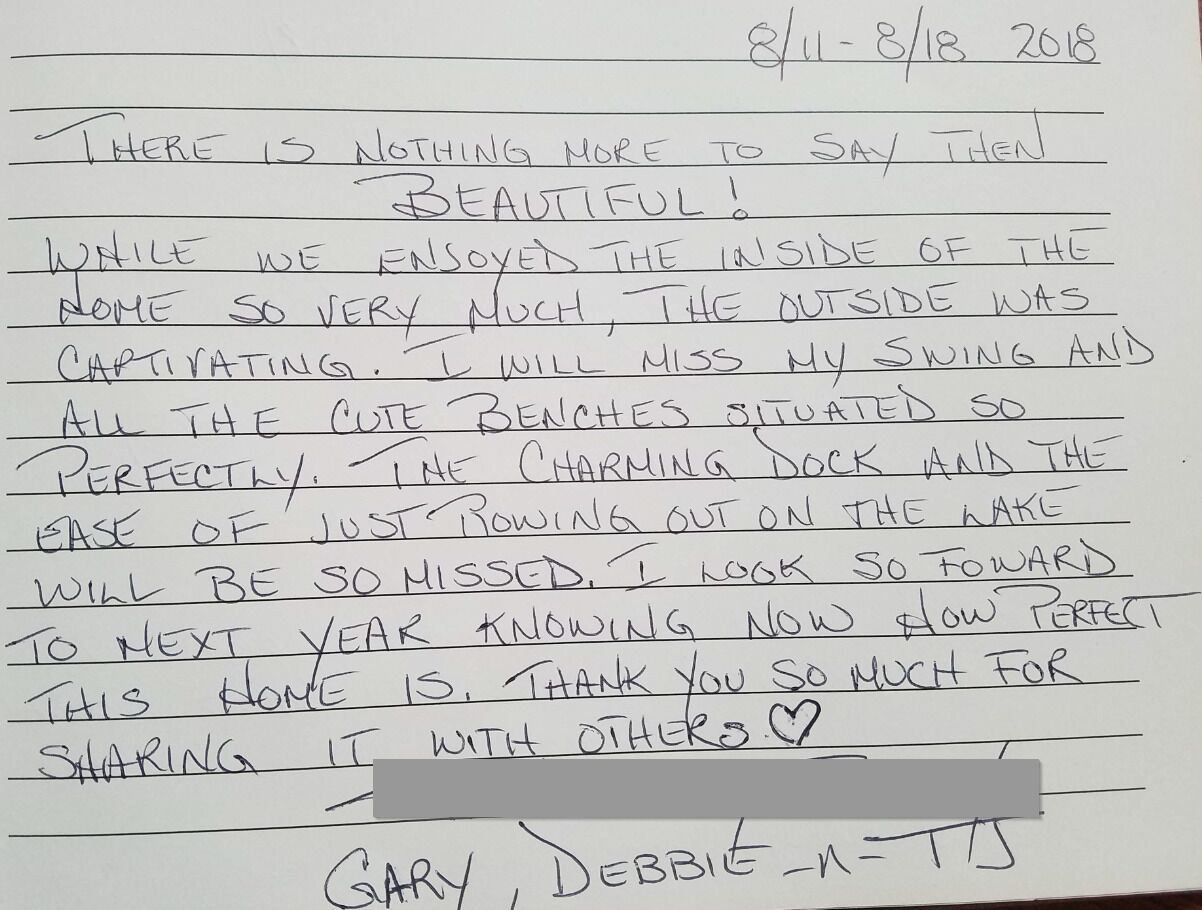 8/11 - 8/18 2018
THERE IS NOTHING MORE TO SAY THEN
BEAUTIFUL!
WHILE WE ENJOYED THE INSIDE OF THE
HOME SO VERY MUCH, THE OUTSIDE WAS
CAPTIVATING. I WILL MISS MY SWING AND
ALL THE CUTE BENCHES SITUATED SO
PERFECTLY. THE CHARMING DOCK AND THE
EASE OF JUST ROWING OUT ON THE LAKE
WILL BE SO MISSED. I LOOK SO FOWARD
TO NEXT YEAR KNOWING NOW HOW PERFECT
THIS HOME IS. THANK YOU SO MUCH FOR
SHARING IT WITH OTHERS. ♡
GARY, DEBBIE -n- TJ